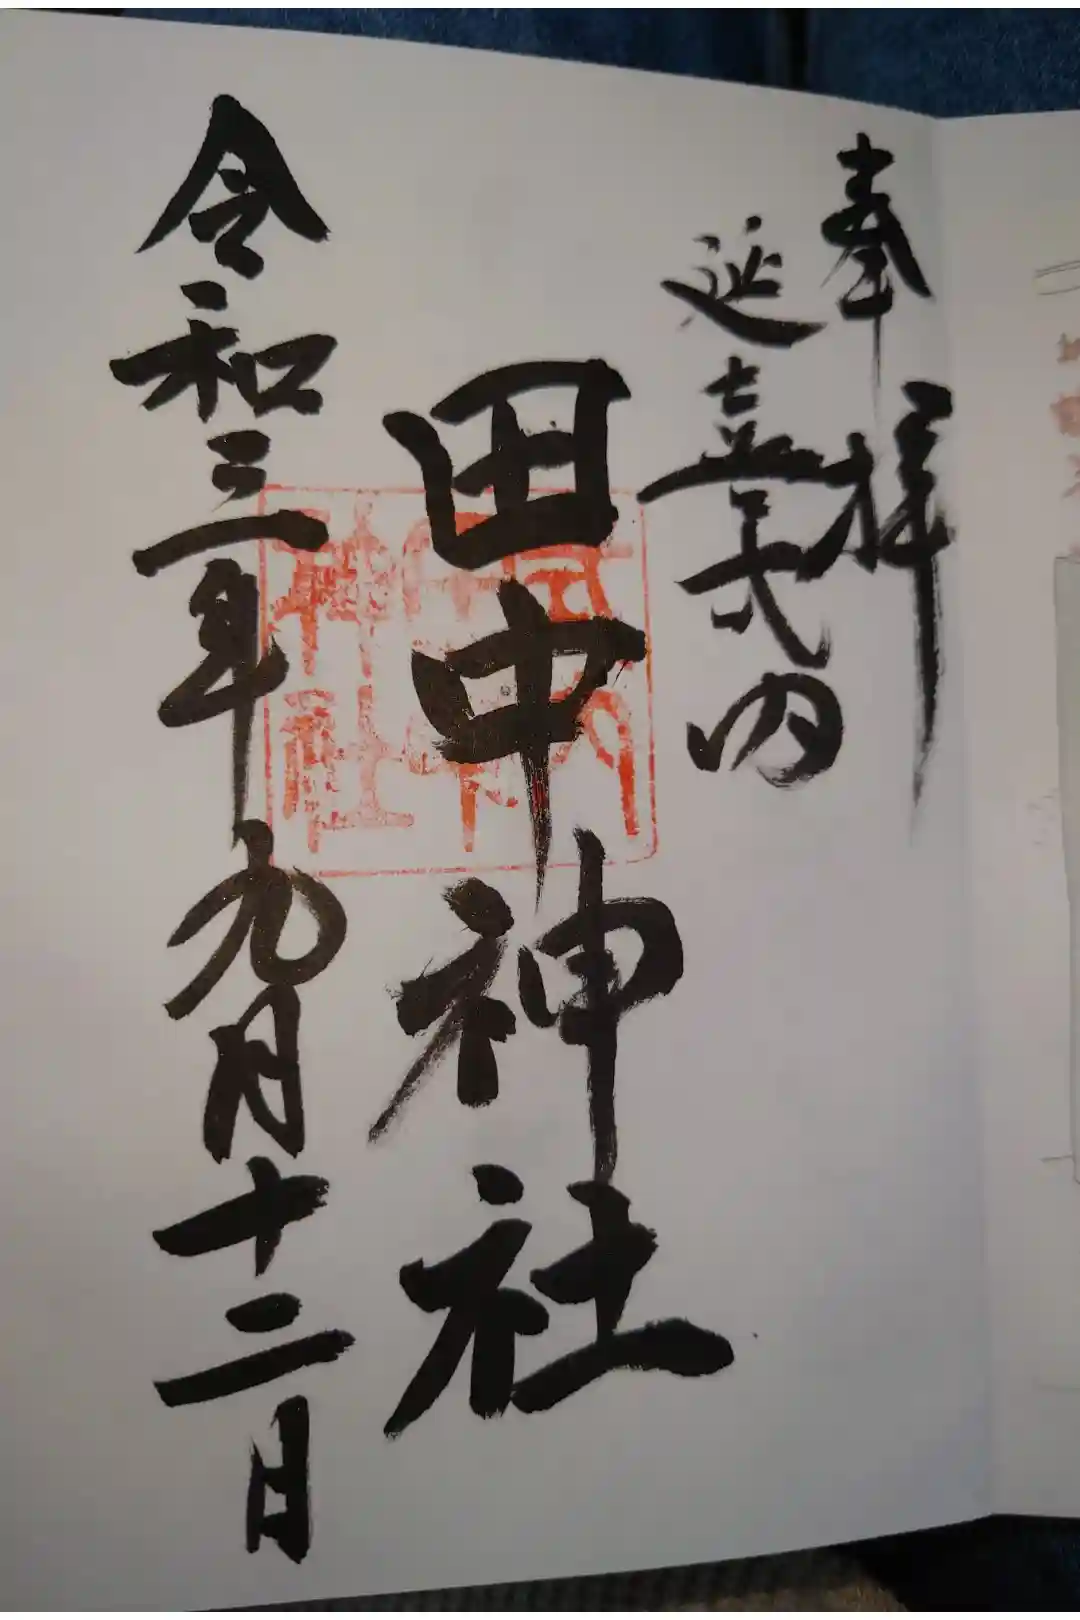 奉拝
延喜式内
田中神社
令和三年九月十二日